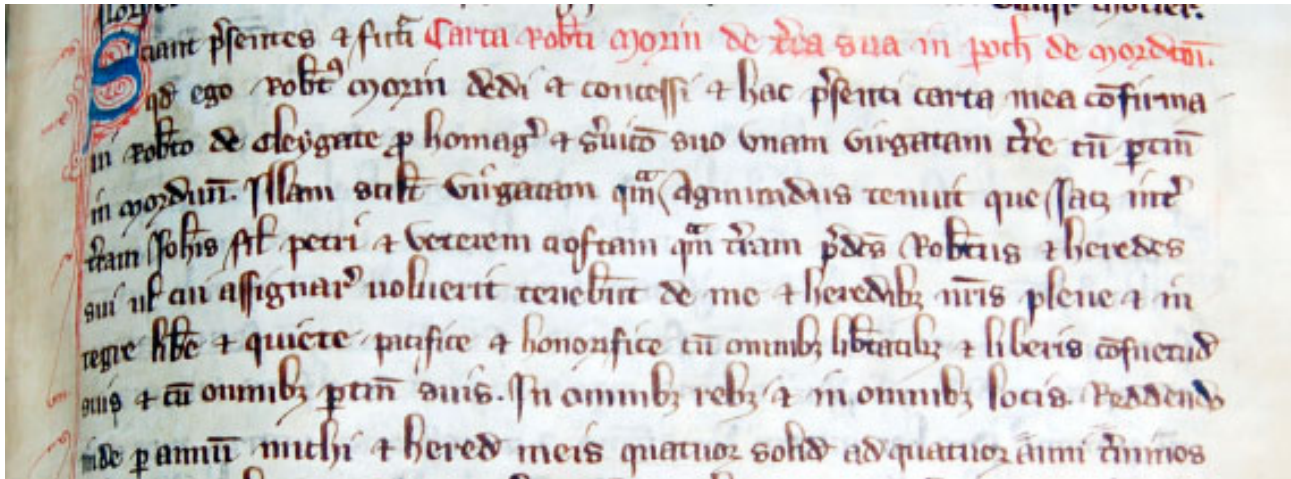 Sciant p̃sentes ⁊ fut̃i Carta Rob̃ti Morin de t̃ra sua in poch̃ de Mordon̄.
qd̃ ego Rob̃t⁹ Morin dedi ⁊ concessi ⁊ hac p̃senti carta mea cōfirma
ui Rob̃to de Cleygate ꝓ homag̃ ⁊ s̃uicō suo vnam virgatam t̃re cū ꝑtin̄
in Mordun̄. Illam scilt̃ virgatam qm̃ Agmundus tenuit que Jacꝫ int̃
t̃ram Joh̃is fil̃ petri ⁊ veterem toftam qm̃ t̃ram p̃dc̃s Rob̃tus ⁊ heredes
sui ul̃ cui assignar̃ uoluerit teneb̃nt de me ⁊ heredibꝫ meis plene ⁊ in
tegre lib̃e ⁊ quiete pacifice ⁊ honorifice cū omnibꝫ lib̃tatibꝫ ⁊ liberis cōsuetud̃
suis ⁊ cū omnibꝫ ꝑtin̄ suis. In omnibꝫ rebꝫ ⁊ in omnibꝫ locis. Reddendo
inde ꝑ annū michi ⁊ hered̃ meis quatuor solid̃ ad quatuor anni t̃minos